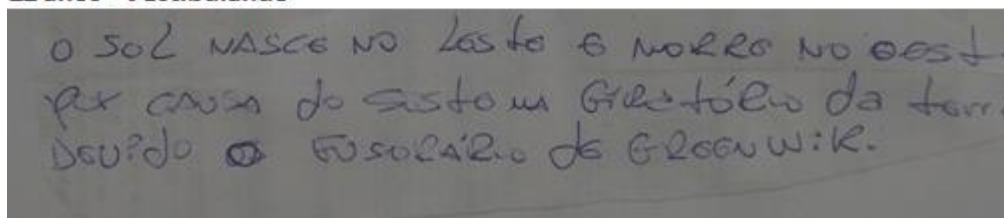 O SOL NASCE NO LESTE E MORRE NO OEST
POR CAUSA do SISTEMA GIRATÓRIO da terr
DEVIDO O FUSORÁRIO dE GREENWIK.